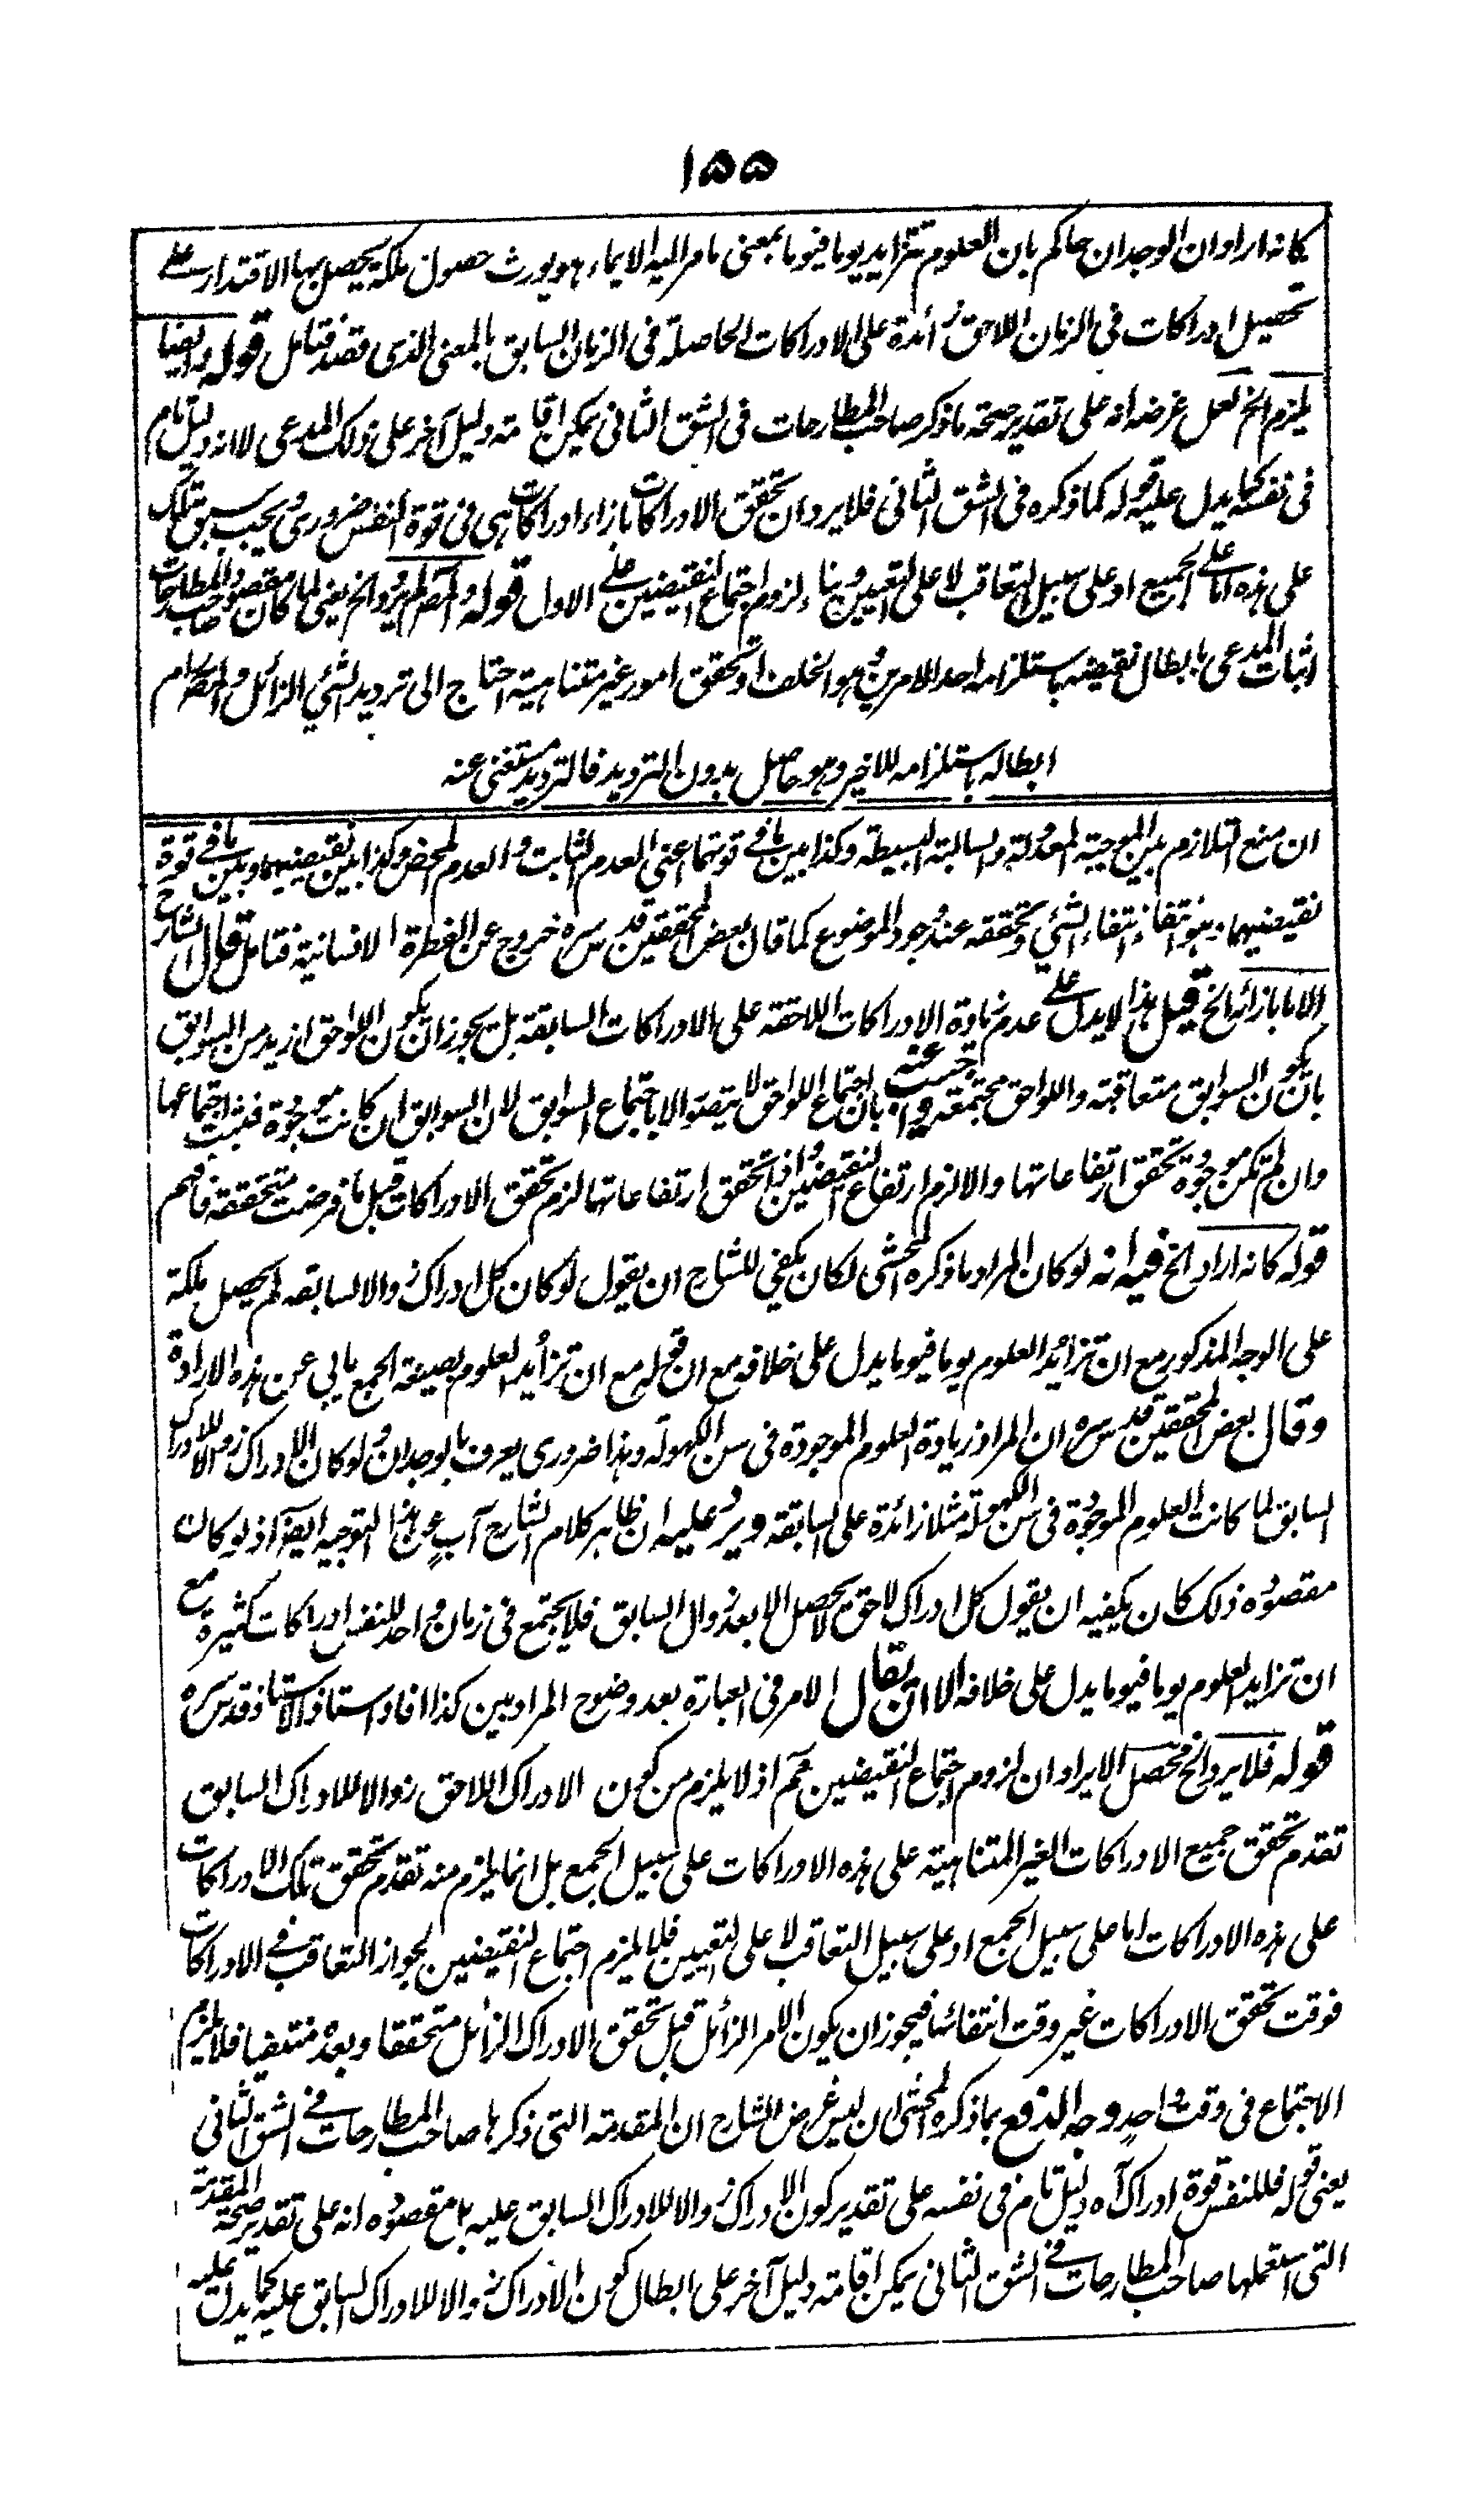 ١٥٥
كانه اراد ان الوجدان حاكم بان العلوم تتزايد يوما فيوما بمعنى ما مر اليه الايماء وهو يورث حصول ملكة يحصل بها الاقتدار على
تحصيل ادراكات فى الزمان اللاحق زائدة على الادراكات الحاصلة فى الزمان السابق بالمعنى الذى قصد فتامل قوله وايضا
يلزم الخ لعل غرضه انه على تقدير صحة ما ذكر صاحب المطارحات فى الشق الثانى يمكن اقامة دليل آخر على ذلك المدعى لا انه دليل تام
فى نفسه كما يدل عليه قوله كما ذكره فى الشق الثانى فلا يرد ان تحقق الادراكات بازاء ادراكات هى فى قوة النفس ضرورى ويجب سبق تلك
على هذه اما على الجميع او على سبيل التعاقب لا على التعيين وبناء لزوم اجتماع النقيضين على الاول قوله والمصر لم يرد الخ يعنى لما كان مقصود صاحب المطارحات
اثبات المدعى بابطال نقيضه باستلزامه احد الامرين وهو الخلف او تحقق امور غير متناهية احتاج الى ترديد الشئ الزائل والمصر رام
ابطاله باستلزامه للاخير وهو حاصل بدون الترديد فالترديد مستغنى عنه
ان منع التلازم بين الموجبة المعدولة والسالبة البسيطة وكذا بين ما فى قوتهما اعنى العدم الثابت والعدم المحض وكذا بين نقيضيهما وبين ما فى قوة
نقيضيهما وهو انتفاء انتفاء الشئ وتحققه عند وجود الموضوع كما قال بعض المحققين قدس سره خروج عن الفطرة الانسانية فتامل قال الشارح
الا ما بازائه الخ قيل هذا لا يدل على عدم زيادة الادراكات اللاحقة على الادراكات السابقة بل يجوز ان يكون اللواحق ازيد من السوابق
بان يكون السوابق متعاقبة واللواحق مجتمعة واجيب عنه بان اجتماع اللواحق لا يتصور الا باجتماع السوابق لان السوابق ان كانت موجودة فثبت اجتماعها
وان لم تكن موجودة تحقق ارتفاعاتها والا لزم ارتفاع النقيضين واذا تحقق ارتفاعاتها لزم تحقق الادراكات قبل ما فرضت متحققة فافهم
قوله كانه اراد الخ فيه انه لو كان المراد ما ذكره المحشى لكان يكفى للشارح ان يقول لو كان كل ادراك زوالا لسابقه لم يحصل ملكة
على الوجه المذكور مع ان تزايد العلوم يوما فيوما يدل على خلافه مع ان قوله مع ان تزايد العلوم بصيغة الجمع يابى عن هذه الارادة
وقال بعض المحققين قدس سره ان المراد زيادة العلوم الموجودة فى سن الكهولة وهذا ضرورى يعرف بالوجدان ولو كان الادراك زوالا للادراك
السابق لما كانت العلوم الموجودة فى سن الكهولة مثلا زائدة على السابقة ويرد عليه ان ظاهر كلام الشارح آب عن هذا التوجيه ايضا اذ لو كان
مقصوده ذلك كان يكفيه ان يقول كل ادراك لاحق لا يحصل الا بعد زوال السابق فلا يجتمع فى زمان واحد للنفس ادراكات كثيرة مع
ان تزايد العلوم يوما فيوما يدل على خلافه الا ان يقال الامر فى العبارة بعد وضوح المراد بين كذا افاد استاذ الاستاذ قدس سره
قوله فلا يرد الخ محصل الايراد ان لزوم اجتماع النقيضين مم اذ لا يلزم من كون الادراك اللاحق زوالا للادراك السابق
تقدم تحقق جميع الادراكات الغير المتناهية على هذه الادراكات على سبيل الجمع بل انما يلزم منه تقدم تحقق تلك الادراكات
على هذه الادراكات اما على سبيل الجمع او على سبيل التعاقب لا على التعيين فلا يلزم اجتماع النقيضين لجواز التعاقب فى الادراكات
فوقت تحقق الادراكات غير وقت انتفائها فيجوز ان يكون الامر الزائل قبل تحقق الادراك الزائل متحققا وبعده منتفيا فلا يلزم
الاجتماع فى وقت واحد ووجه الدفع بما ذكره المحشى ان ليس غرض الشارح ان المقدمة التى ذكرها صاحب المطارحات فى الشق الثانى
يعنى قوله فللنفس قوة ادراك آه دليل تام فى نفسه على تقدير كون الادراك زوالا للادراك السابق عليه بل مقصوده انه على تقدير صحة المقدمة
التى استعملها صاحب المطارحات فى الشق الثانى يمكن اقامة دليل آخر على ابطال كون الادراك زوالا للادراك السابق عليه كما يدل عليه